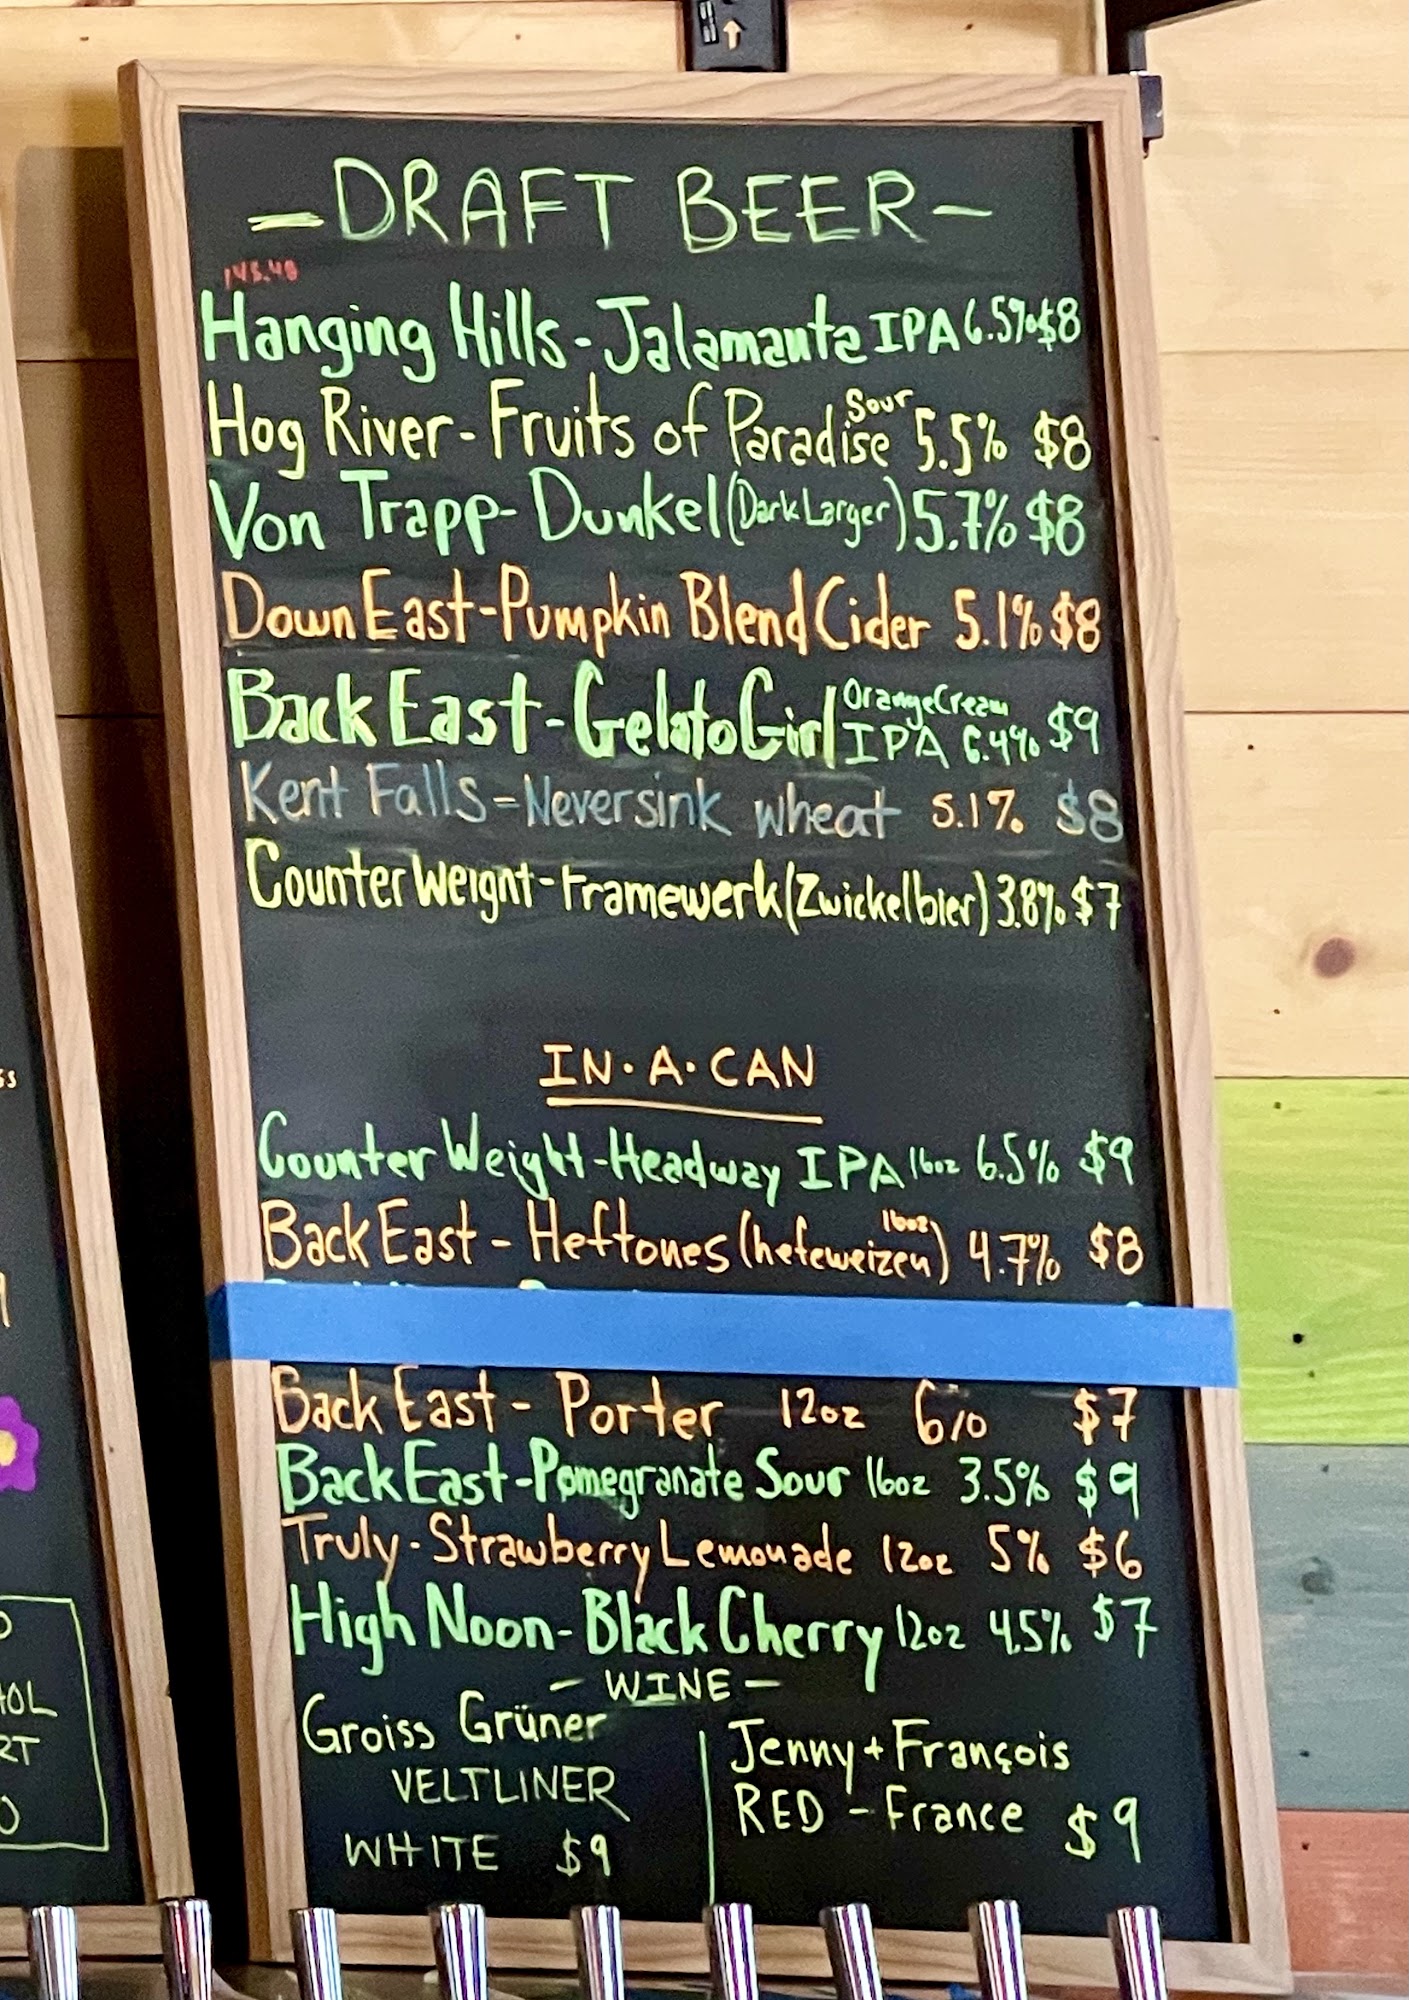 - DRAFT BEER -
143.48
Hanging Hills - Jalamanta IPA 6.5% $8
Hog River - Fruits of Paradise Sour 5.5% $8
Von Trapp - Dunkel (Dark Larger) 5.7% $8
Down East - Pumpkin Blend Cider 5.1% $8
Back East - Gelato Girl Orange Cream IPA 6.4% $9
Kent Falls - Neversink wheat 5.1% $8
Counter Weight - Framewerk (Zwickelbier) 3.8% $7
IN·A·CAN
Counter Weight - Headway IPA 16oz 6.5% $9
Back East - Heftones (hefeweizen) 16oz 4.7% $8
Back East - Porter 12oz 6% $7
Back East - Pomegranate Sour 16oz 3.5% $9
Truly - Strawberry Lemonade 12oz 5% $6
High Noon - Black Cherry 12oz 4.5% $7
- WINE -
Groiss Grüner
VELTLINER
WHITE $9
Jenny + François
RED - France $9